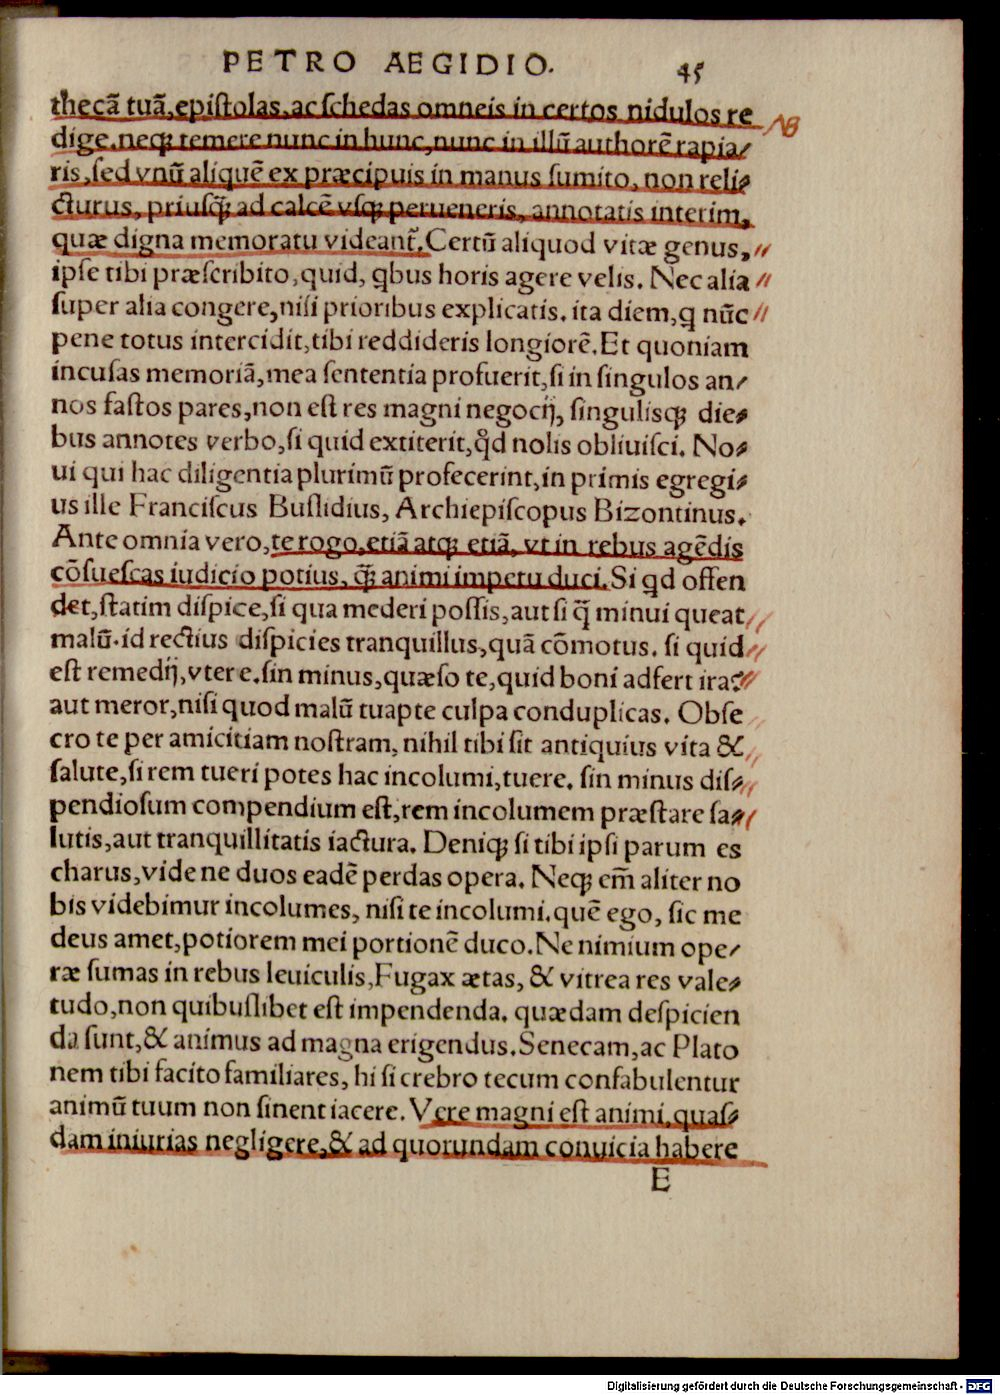 PETRO AEGIDIO.
45
thecã tuã, epiſtolas, ac ſchedas omneis in certos nidulos re
NB
dige. neqꝫ temere nunc in hunc, nunc in illũ authorẽ rapia/
ris, ſed vnũ aliquẽ ex præcipuis in manus ſumito, non reli⸗
cturus, priuſq̃ ad calcẽ vſqꝫ perueneris, annotatis interim,
quæ digna memoratu videant᷑. Certũ aliquod vitæ genus,
ipſe tibi præſcribito, quid, qbus horis agere velis. Nec alia
ſuper alia congere, niſi prioribus explicatis. ita diem, q nũc
pene totus intercidit, tibi reddideris longiorẽ. Et quoniam
incuſas memoriã, mea ſententia profuerit, ſi in ſingulos an/
nos faſtos pares, non eſt res magni negocij, ſingulisqꝫ die⸗
bus annotes verbo, ſi quid extiterit, qd̓ nolis obliuiſci. No⸗
ui qui hac diligentia plurimũ profecerint, in primis egregi⸗
us ille Franciſcus Buſlidius, Archiepiſcopus Bizontinus.
Ante omnia vero, te rogo, etiã atqꝫ etiã, vt in rebus agẽdis
cõſueſcas iudicio potius, q̃ꝫ animi impetu duci. Si qd offen
det, ſtatim diſpice, ſi qua mederi poſſis, aut ſi q̃ minui queat
malũ. id rectius diſpicies tranquillus, quã cõmotus. ſi quid
eſt remedij, vtere. ſin minus, quæſo te, quid boni adfert ira?
aut meror, niſi quod malũ tuapte culpa conduplicas. Obſe
cro te per amicitiam noſtram, nihil tibi ſit antiquius vita &
ſalute, ſi rem tueri potes hac incolumi, tuere. ſin minus diſ⸗
pendioſum compendium eſt, rem incolumem præſtare ſa⸗
lutis, aut tranquillitatis iactura. Deniqꝫ ſi tibi ipſi parum es
charus, vide ne duos eadẽ perdas opera. Neqꝫ em̃ aliter no
bis videbimur incolumes, niſi te incolumi. quẽ ego, ſic me
deus amet, potiorem mei portionẽ duco. Ne nimium ope/
ræ ſumas in rebus leuiculis, Fugax ætas, & vitrea res vale⸗
tudo, non quibuſlibet eſt impendenda. quædam deſpicien
da ſunt, & animus ad magna erigendus. Senecam, ac Plato
nem tibi facito familiares, hi ſi crebro tecum confabulentur
animũ tuum non ſinent iacere. Vere magni eſt animi, quaſ⸗
dam iniurias negligere, & ad quorundam conuicia habere
E
Digitalisierung gefördert durch die Deutsche Forschungsgemeinschaft - DFG